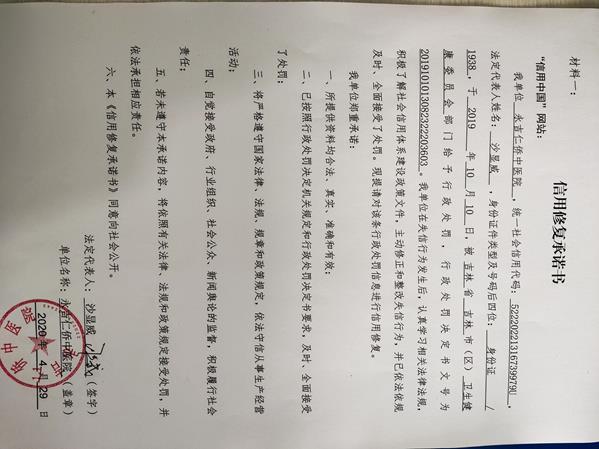 材料一：
信用修复承诺书
“信用中国”网站：
我单位 永吉仁侨中医院 ，统一社会信用代码： 52220221316739979U ，
法定代表人姓名： 沙显威 ，身份证件类型及号码后四位： 身份证 /
1938，于 2019 年 10 月 10 日，被 吉林 省 吉林 市（区）卫生健
康委员会部门给予行政处罚，行政处罚决定书文号为
20191010130823222203603。我单位在失信行为发生后，认真学习相关法律法规，
积极了解社会信用体系建设政策文件，主动修正和整改失信行为，并已依法依规
及时、全面接受了处罚。现提请对该条行政处罚信息进行信用修复。
我单位郑重承诺：
一、所提供资料均合法、真实、准确和有效；
二、已按照行政处罚决定机关规定和行政处罚决定书要求，及时、全面接受
了处罚；
三、将严格遵守国家法律、法规、规章和政策规定，依法守信从事生产经营
活动；
四、自觉接受政府、行业组织、社会公众、新闻舆论的监督，积极履行社会
责任；
五、若未遵守本承诺内容，将依照有关法律、法规和政策规定接受处罚，并
依法承担相应责任。
六、本《信用修复承诺书》同意向社会公开。
法定代表人： 沙显威 （签字）
单位名称：永吉仁侨中医院（盖章）
2020 年 4 月 29 日